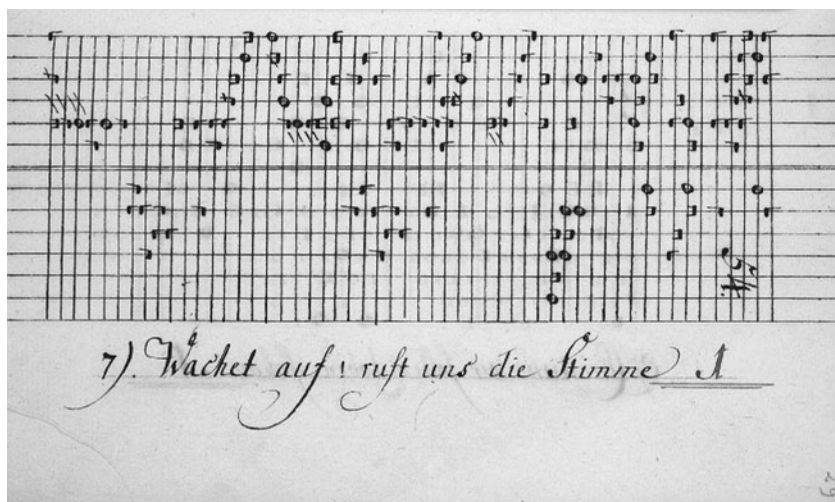 54.
7). Wachet auf! ruft uns die Stimme 1